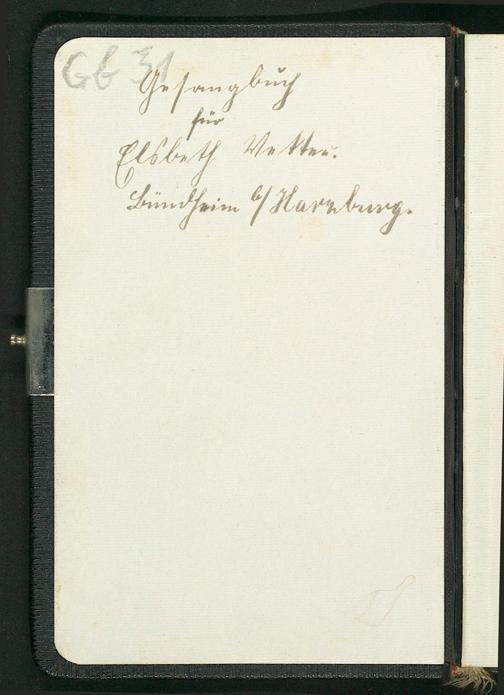 Gb 31
Gesangbuch
für
Elsbeth Vetter.
Bündheim b/Harzburg.